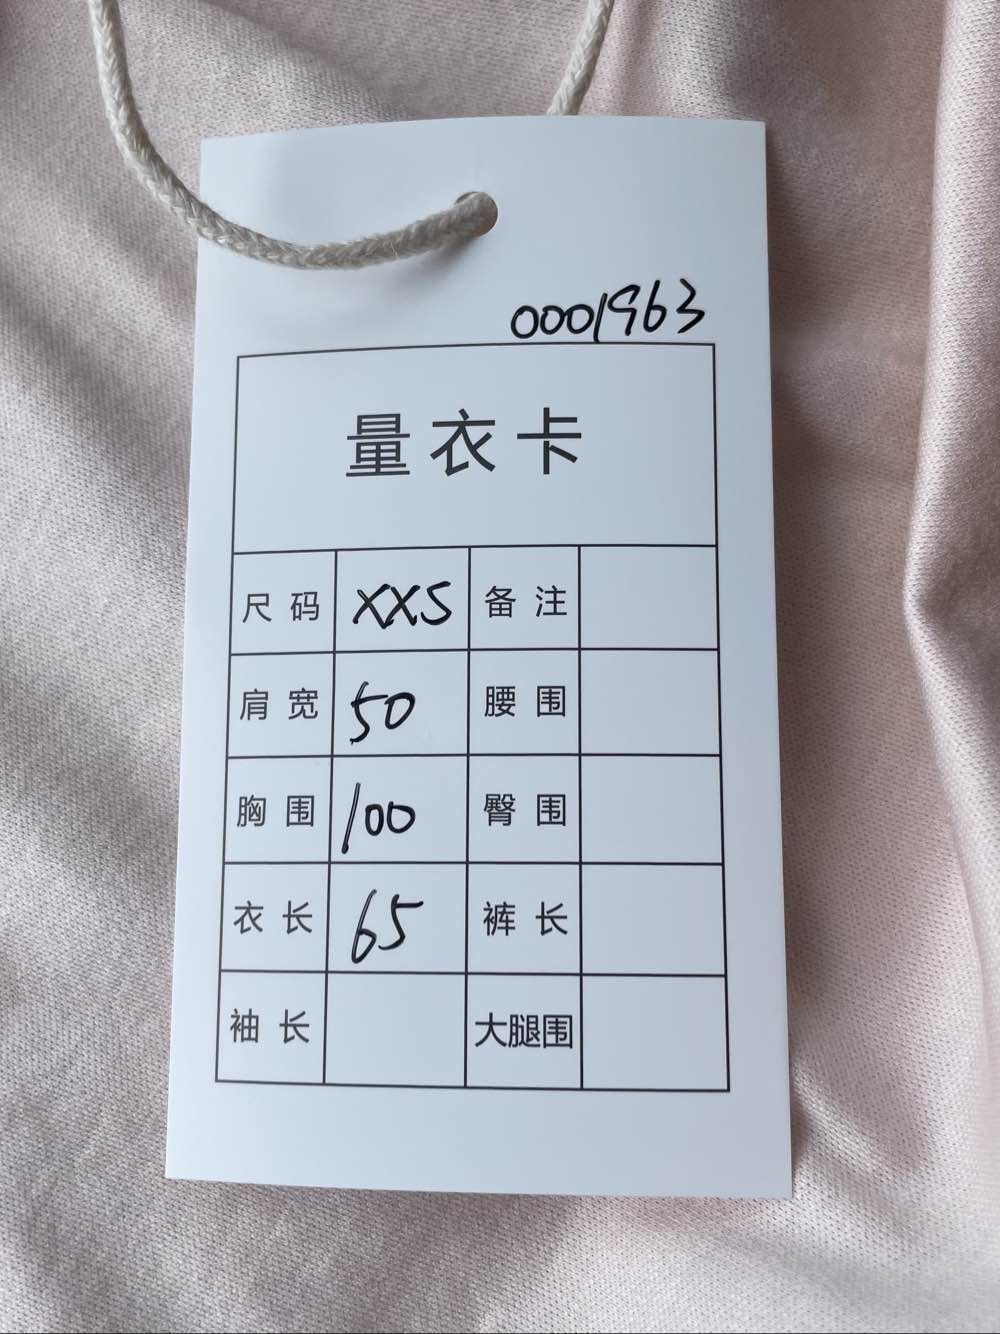 0001963
量衣卡
尺码 XXS 备注
肩宽 50 腰围
胸围 100 臀围
衣长 65 裤长
袖长 大腿围